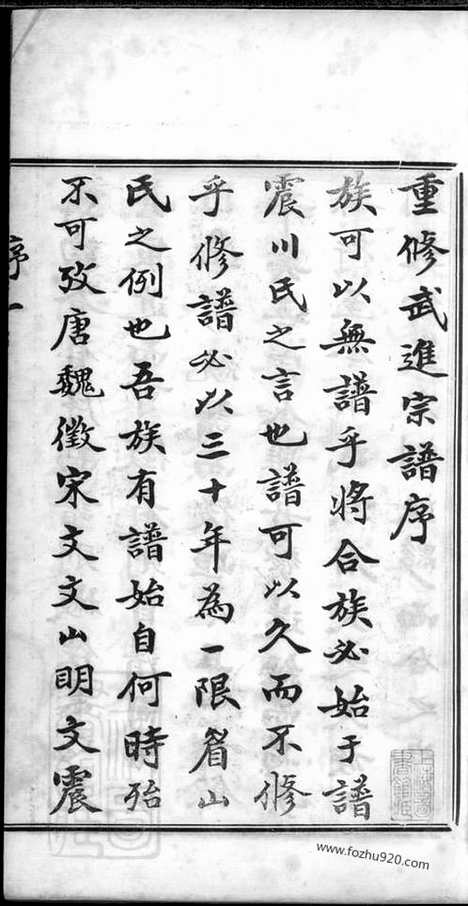 重修武進宗譜序
族可以無譜乎將合族必始于譜
震川氏之言也譜可以久而不修
乎修譜必以三十年為一限眉山
氏之例也吾族有譜始自何時殆
不可攷唐魏徵宋文文山明文震
序一
www.fozhu920.com